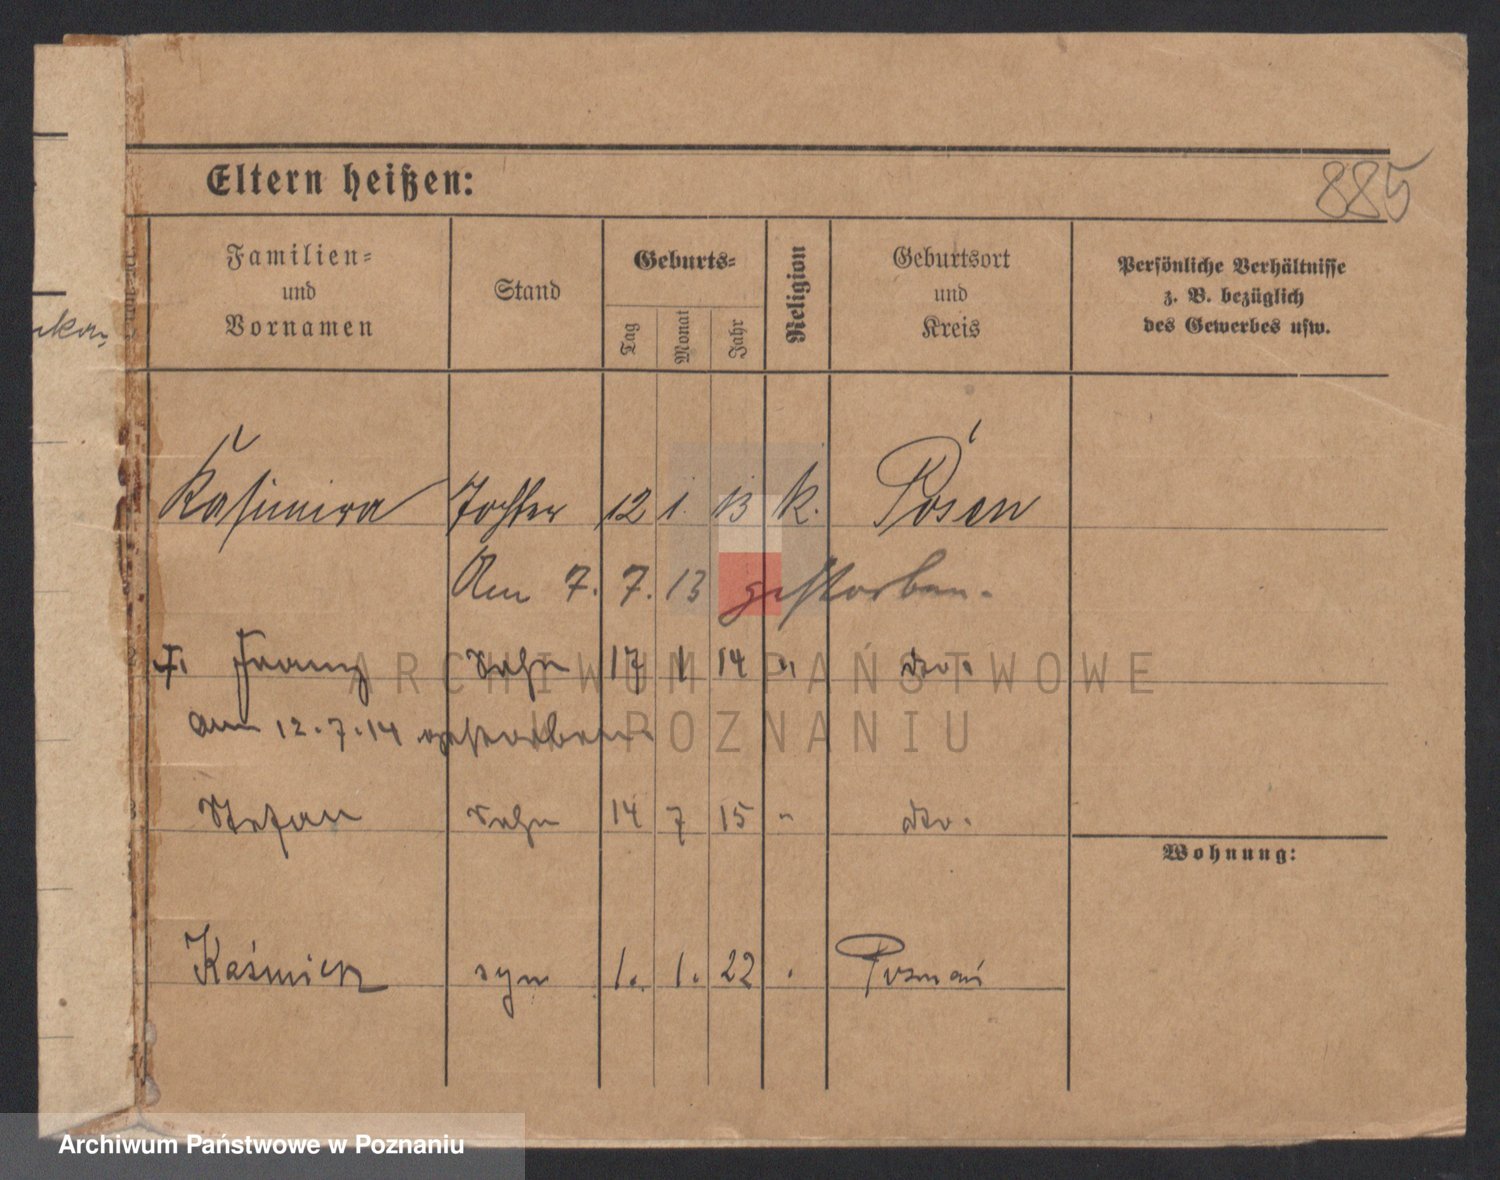 885
Eltern heißen:
Familien=
und
Vornamen
Stand
Geburts=
Tag
Monat
Jahr
Religion
Geburtsort
und
Kreis
Persönliche Verhältnisse
z. B. bezüglich
des Gewerbes usw.
Kasimira Tochter 12 1. 13 k. Posen
Am 7. 7. 13 gestorben.
Franz Sohn 17 1 14 " do.
am 12.7.14 gestorben
Stefan Sohn 14 7 15 " do.
Wohnung:
Kaźmierz syn 1. 1. 22 . Poznań
ARCHIWUM PAŃSTWOWE
W POZNANIU
Archiwum Państwowe w Poznaniu